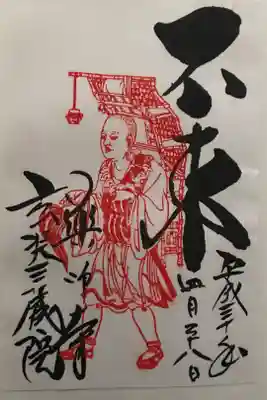 不東
平成三十年
四月二十八日
薬師寺
玄奘三蔵院